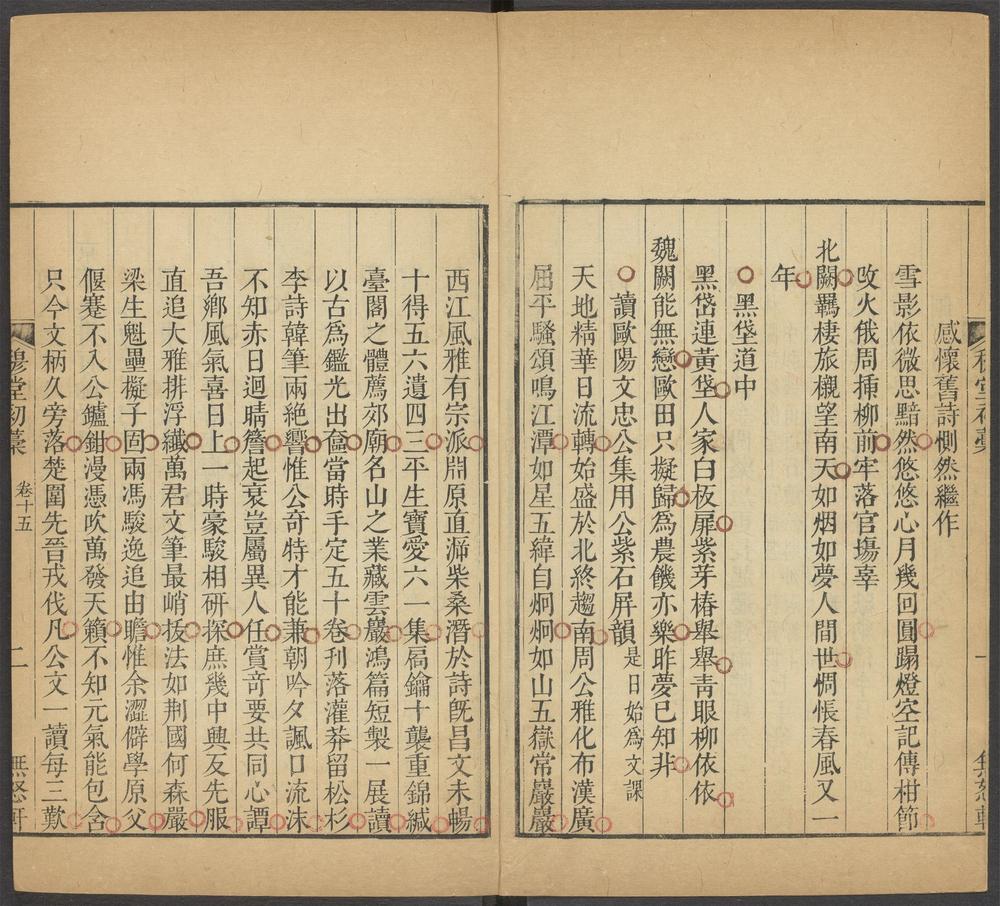 感懷舊詩惻然繼作
雪影依微思黯然悠悠心月幾回圓蹋燈空記傳柑節
改火俄周揷柳前牢落官塲辜
北闕羈棲旅櫬望南天如烟如夢人間世惆悵春風又一
年
黑垡道中
黑岱連黃垡人家白板扉紫芽椿舉舉青眼柳依依
魏闕能無戀歐田只擬歸爲農饑亦樂昨夢已知非
讀歐陽文忠公集用公紫石屏韻是日始爲文課
天地精華日流轉始盛於北終趨南周公雅化布漢廣
屈平騷頌鳴江潭如星五緯自炯炯如山五嶽常巖巖
西江風雅有宗派淵原直泝柴桑潛於詩旣昌文未暢
十得五六遺四三平生寶愛六一集扃鑰十襲重錦緘
臺閣之體薦郊廟名山之業藏雲巖鴻篇短製一展讀
以古爲鑑光出奩當時手定五十卷刋落灌莽留松杉
李詩韓筆兩絕響惟公奇特才能兼朝吟夕諷口流沫
不知赤日迴晴簷起衰豈屬異人任賞奇要共同心譚
吾鄉風氣喜日上一時豪駿相硏探庶幾中興友先服
直追大雅排浮纖萬君文筆最峭拔法如荆國何森嚴
梁生魁壘擬子固兩馮駿逸追由瞻惟余澀僻學原父
偃蹇不入公鑪鉗漫憑吹萬發天籟不知元氣能包含
只今文柄久旁落楚圍先晉戎伐凡公文一讀每三歎
穆堂初藁
卷十五
二
無怒軒